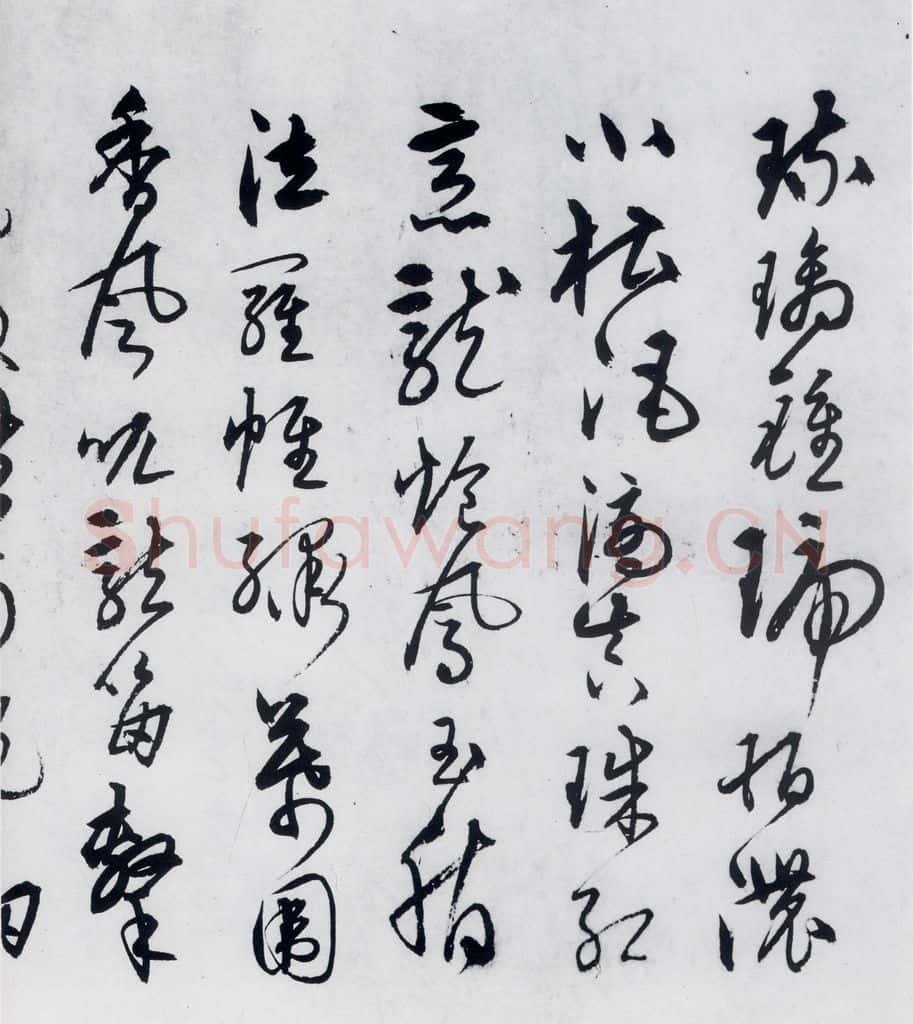 琉璃鍾琥珀濃
小槽酒滴真珠紅
烹龍炮鳳玉脂
泣羅幃繡幕圍
香風吹龍笛擊
Shufawang.CN